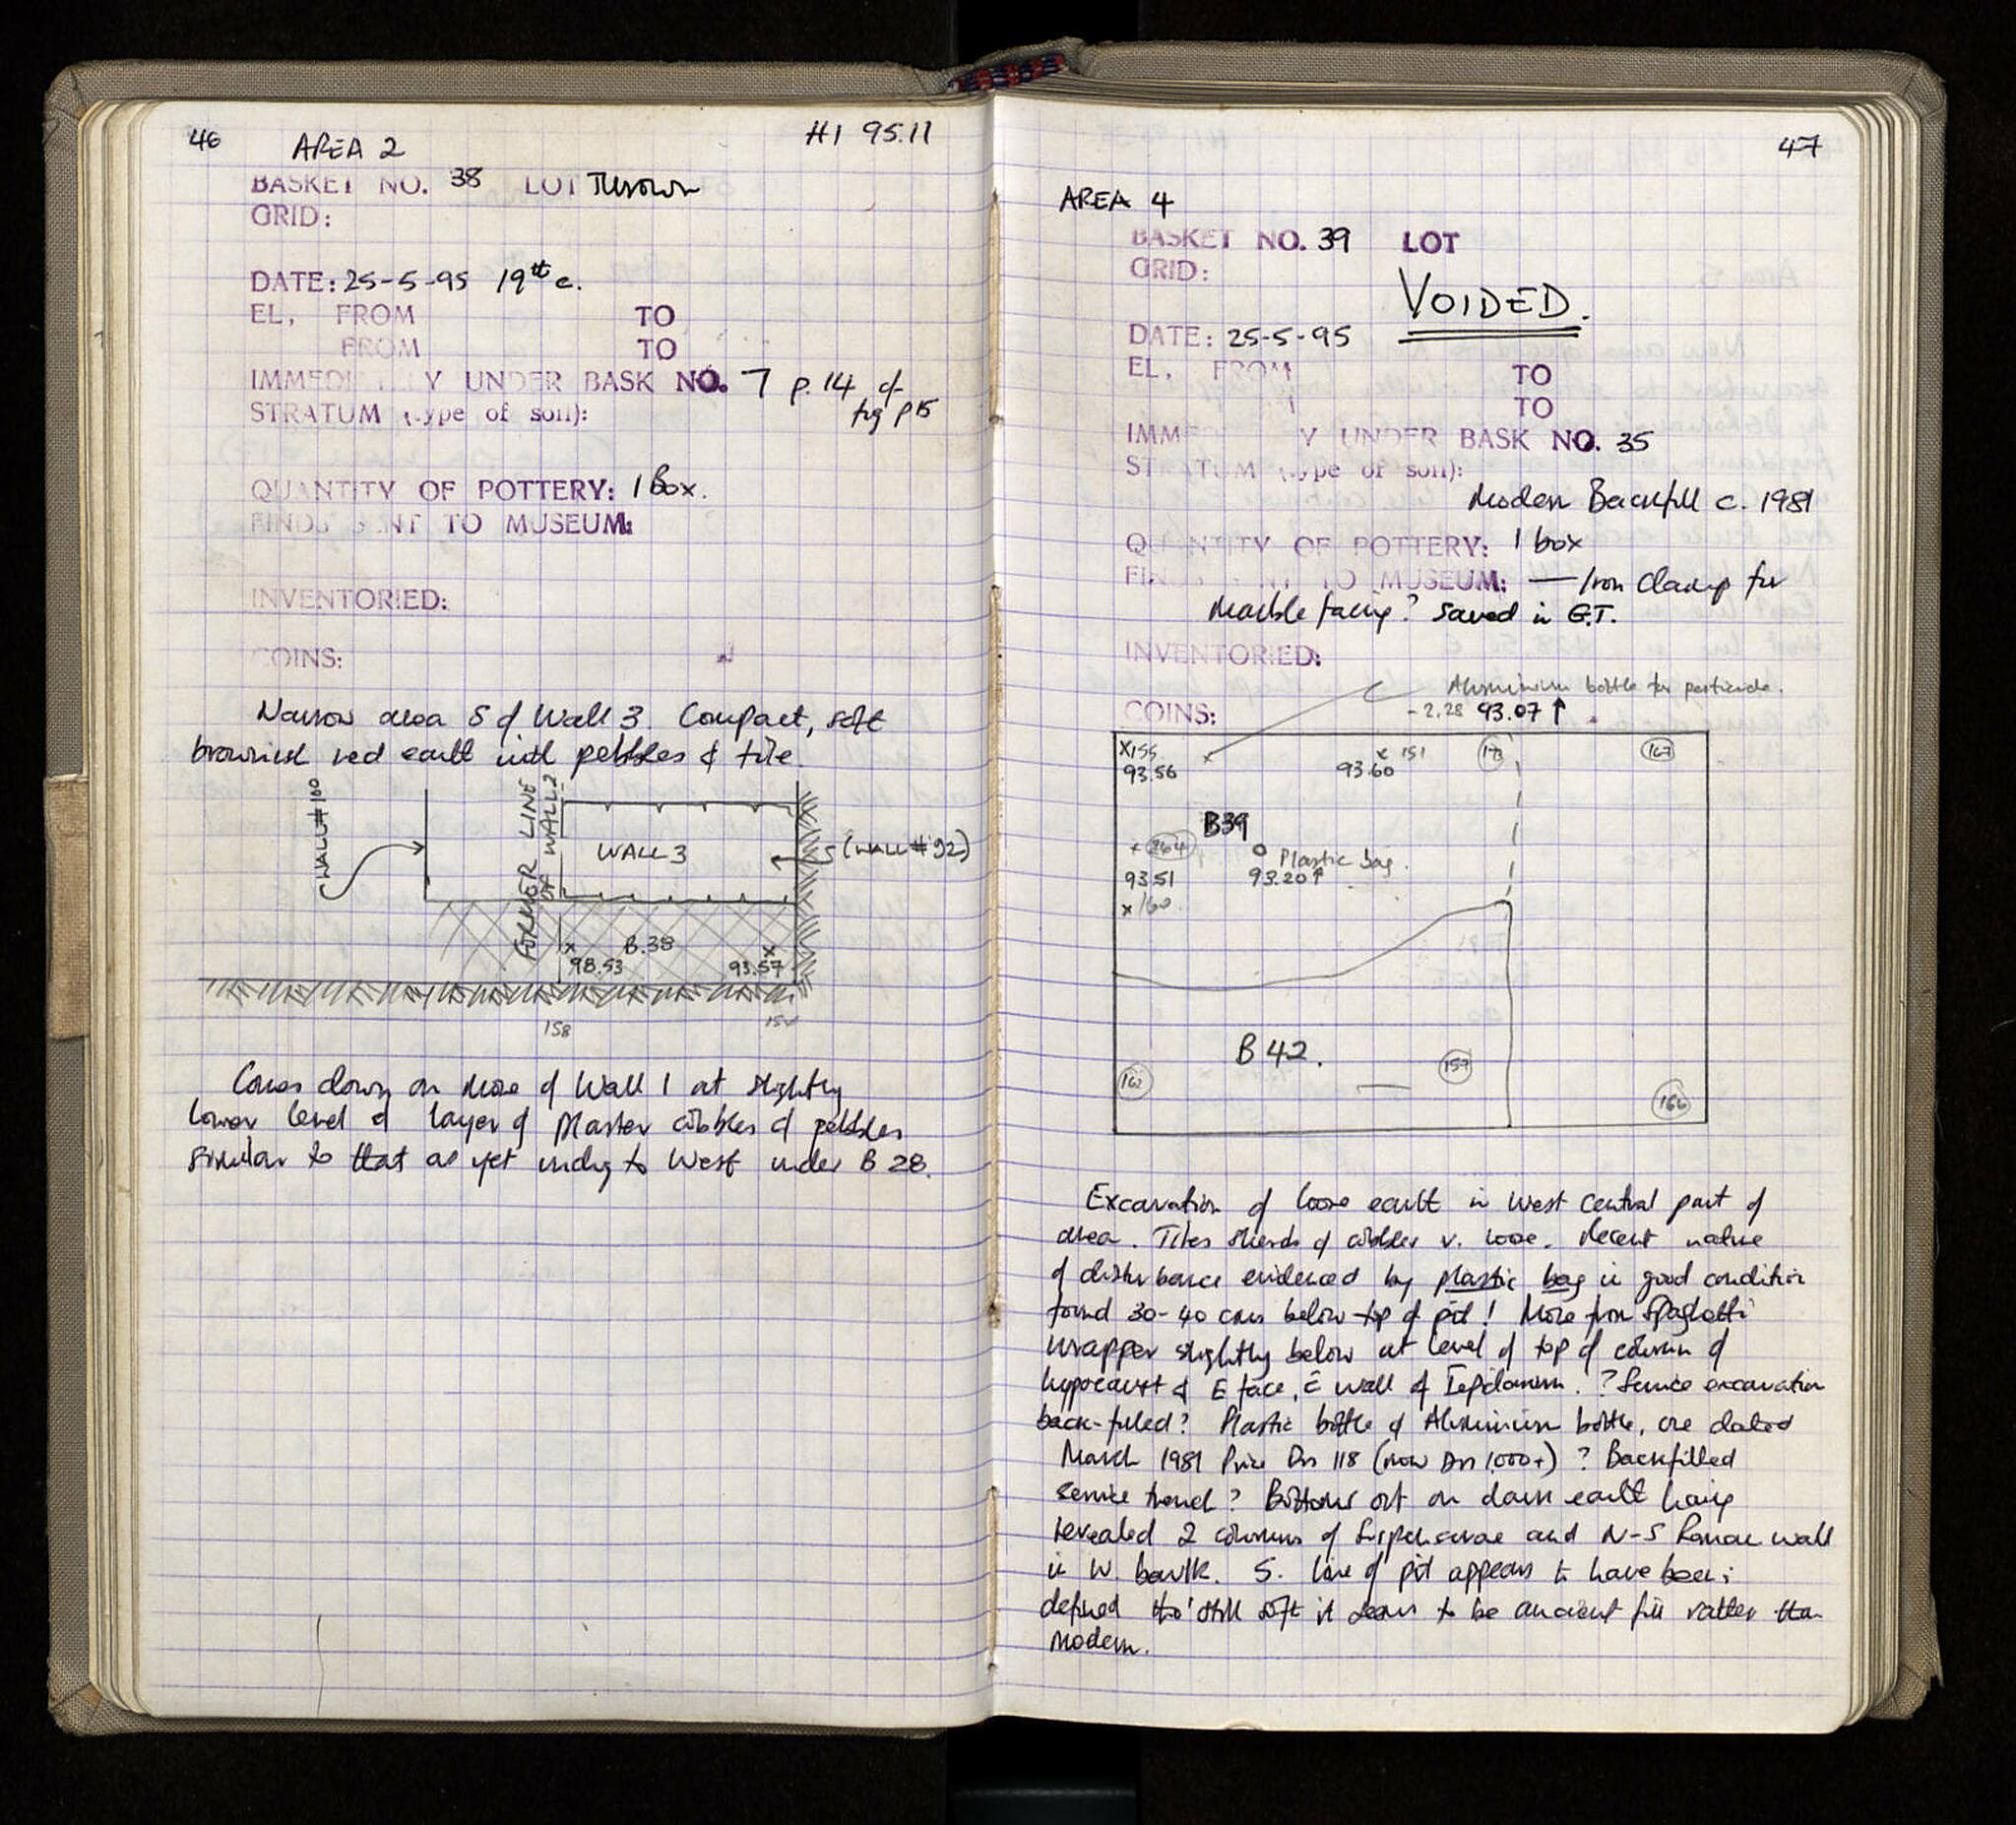 46 AREA 2 H1 95.11
BASKET NO. 38 LOT Thrown
GRID:
DATE: 25-5-95 19th c.
EL, FROM TO
FROM TO
IMMEDI Y UNDER BASK NO. 7 p. 14 cf
fig p15
STRATUM (type of soil):
QUANTITY OF POTTERY: 1 Box.
FINDS SENT TO MUSEUM:
INVENTORIED:
COINS:
Narrow area S of Wall 3. Compact, soft
brownish red earth with pebbles & tile.
WALL #100
FORMER LINE
OF WALL 2
WALL 3
(WALL #92)
B.38
98.53 93.57
158
Comes down on more of Wall 1 at slightly
lower level & layer of plaster cobbles & pebbles
similar to that as yet undug to West under B 28.
47
AREA 4
BASKET NO. 39 LOT
GRID:
VOIDED.
DATE: 25-5-95
EL, FROM TO
TO
IMME Y UNDER BASK NO. 35
STRATUM (type of soil):
Modern Backfill c. 1981
QUANTITY OF POTTERY: 1 box
FINDS SENT TO MUSEUM: — Iron Clamp for
Marble facing? Saved in G.T.
INVENTORIED:
Aluminium bottle for pesticide.
COINS: -2.28 93.07↑
x155 x 151 173 167
93.56 93.60
B39
+ 264 Plastic bag.
93.51 93.20↑
x 160
B 42.
162 159 166
Excavation of loose earth in West Central part of
area. Tiles sherds & cobbles v. loose. Recent nature
of disturbance evidenced by plastic bag in good condition
found 30-40 cms below top of pit! More from Spaghetti
wrapper slightly below at level of top of column of
hypocaust & E face, E wall of Tepidarium. ? Service excavation
back-filled? Plastic bottle & Aluminium bottle, one dated
March 1981 Price Drs 118 (now Drs 1,000+) ? Backfilled
service trench? Bottoms out on dark earth having
revealed 2 columns of Suspensurae and N-S Roman wall
in W. baulk. S. line of pit appears to have been
defined tho' still soft it seems to be ancient fill rather than
modern.